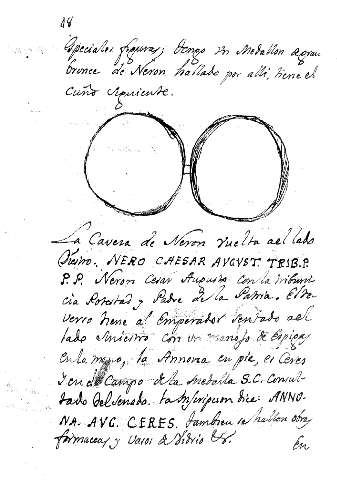 18
Speciales figuras; tengo un Medallon de gran
bronce de Neron hallado por alli, tiene el
cuño siguiente.
La Caveza de Neron vuelta a el lado
Diestro. NERO CAESAR AVGVST. TRIB. P.
P. P. Neron Cesar Augusto con la tribuni
cia Potestad y Padre de la Patria. El Re
verso tiene al Emperador sentado a el
lado siniestro con un manojo de Espigas
en la mano, la Annona en pie, es Ceres
y en el Campo de la Medalla S.C. Consul
tado del Senado. la Inscripcion dice: ANNO-
NA. AVG. CERES. tambien se hallan otras
y Vasos de Vidrio &c.
En